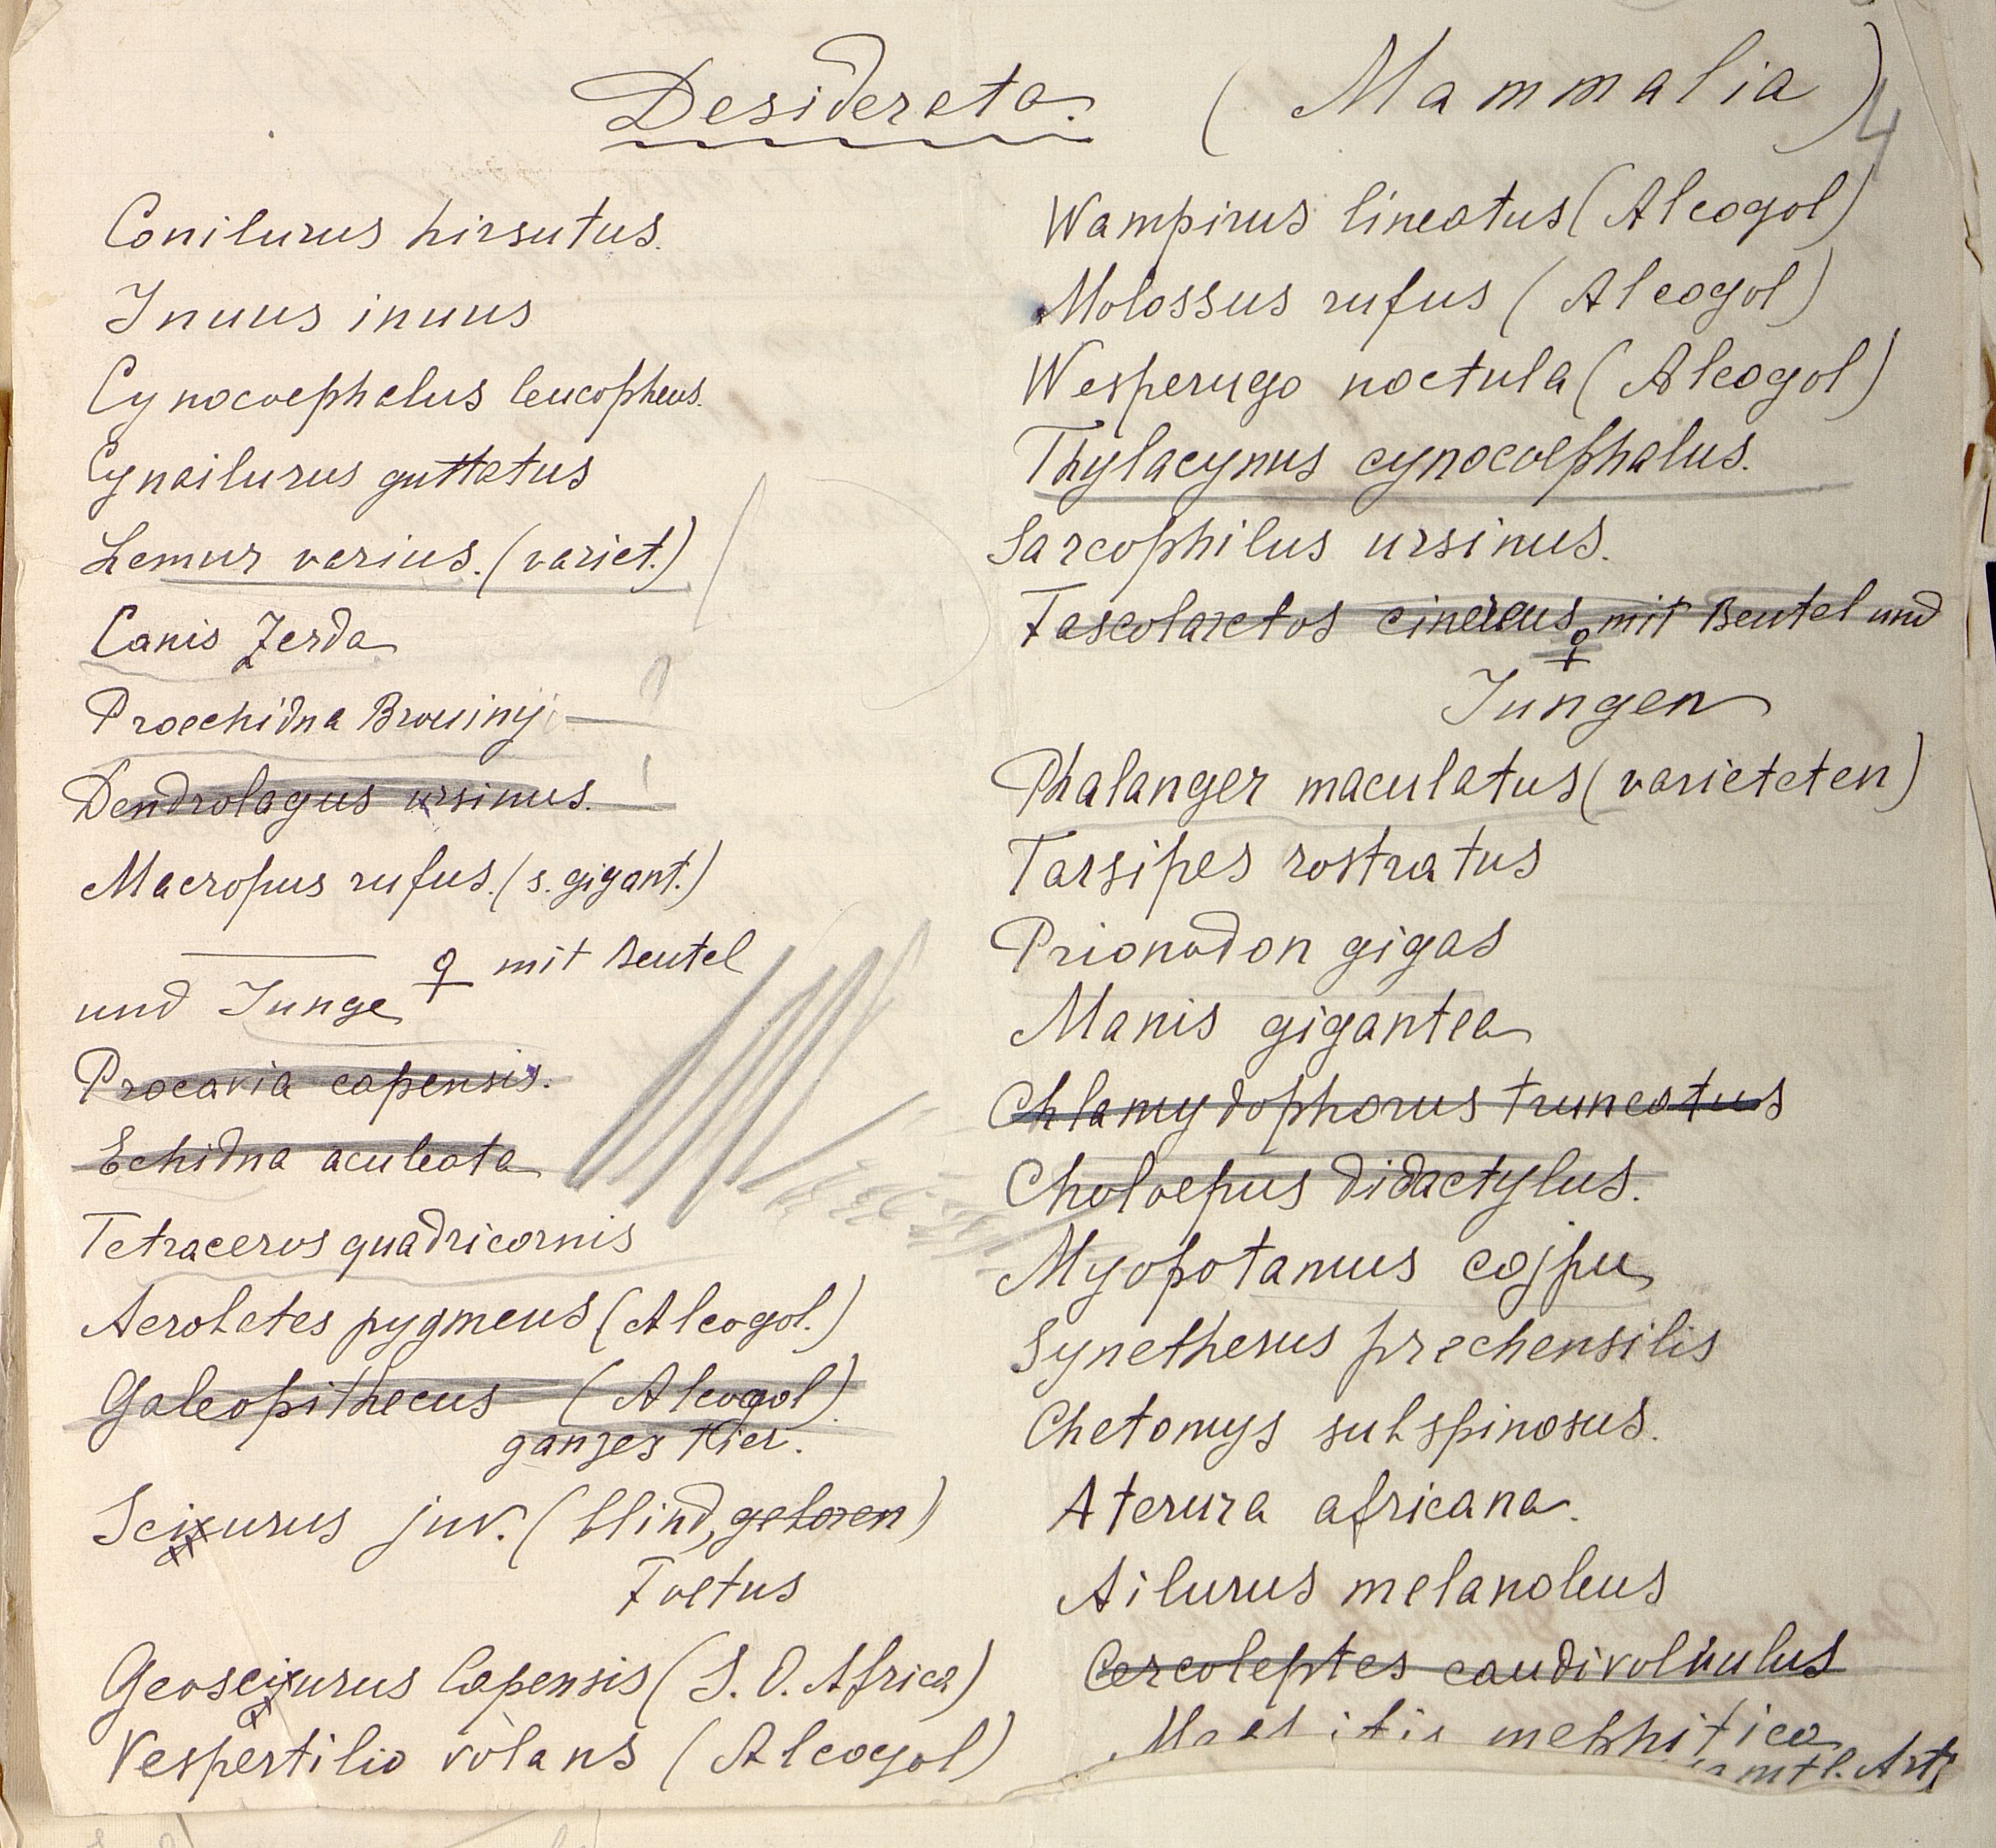 Desidereta. (Mammalia) 4
Conilurus hirsutus.
Inuus inuus
Cynocoephalus leucopheus.
Cynailurus guttatus
Lemur varius. (variet.)
Canis Zerda
Proechidna Brouinij
Dendrolagus ursinus.
Macropus rufus. (s. gigant.)
♀ mit Beutel
und Junge
Procavia capensis.
Echidna aculeata
Tetraceros quadricornis
Acrobetes pygmeus (Alcogol.)
Galeopithecus (Alcogol)
ganzes Tier.
Sciurus juv. (blind, geboren)
Foetus
Geosciurus Capensis (S. O. Africa)
Vespertilio volans (Alcogol)
Wampirus lineatus (Alcogol)
Molossus rufus (Alcogol)
Wesperugo noctula (Alcogol)
Thylacynus cynocoephalus.
Sarcophilus ursinus.
Fascolarctos cinereus ♀ mit Beutel und
Jungen
Phalanger maculatus (varieteten)
Tarsipes rostratus
Prionodon gigas
Manis gigantea
Chlamydophorus truncatus
Choloepus didactylus.
Myopotamus cojpu
Synetherus prechensilis
Chetomys subspinosus.
Aterura africana.
Ailurus melanoleus
Cercoleptes caudivolvulus
mephitica